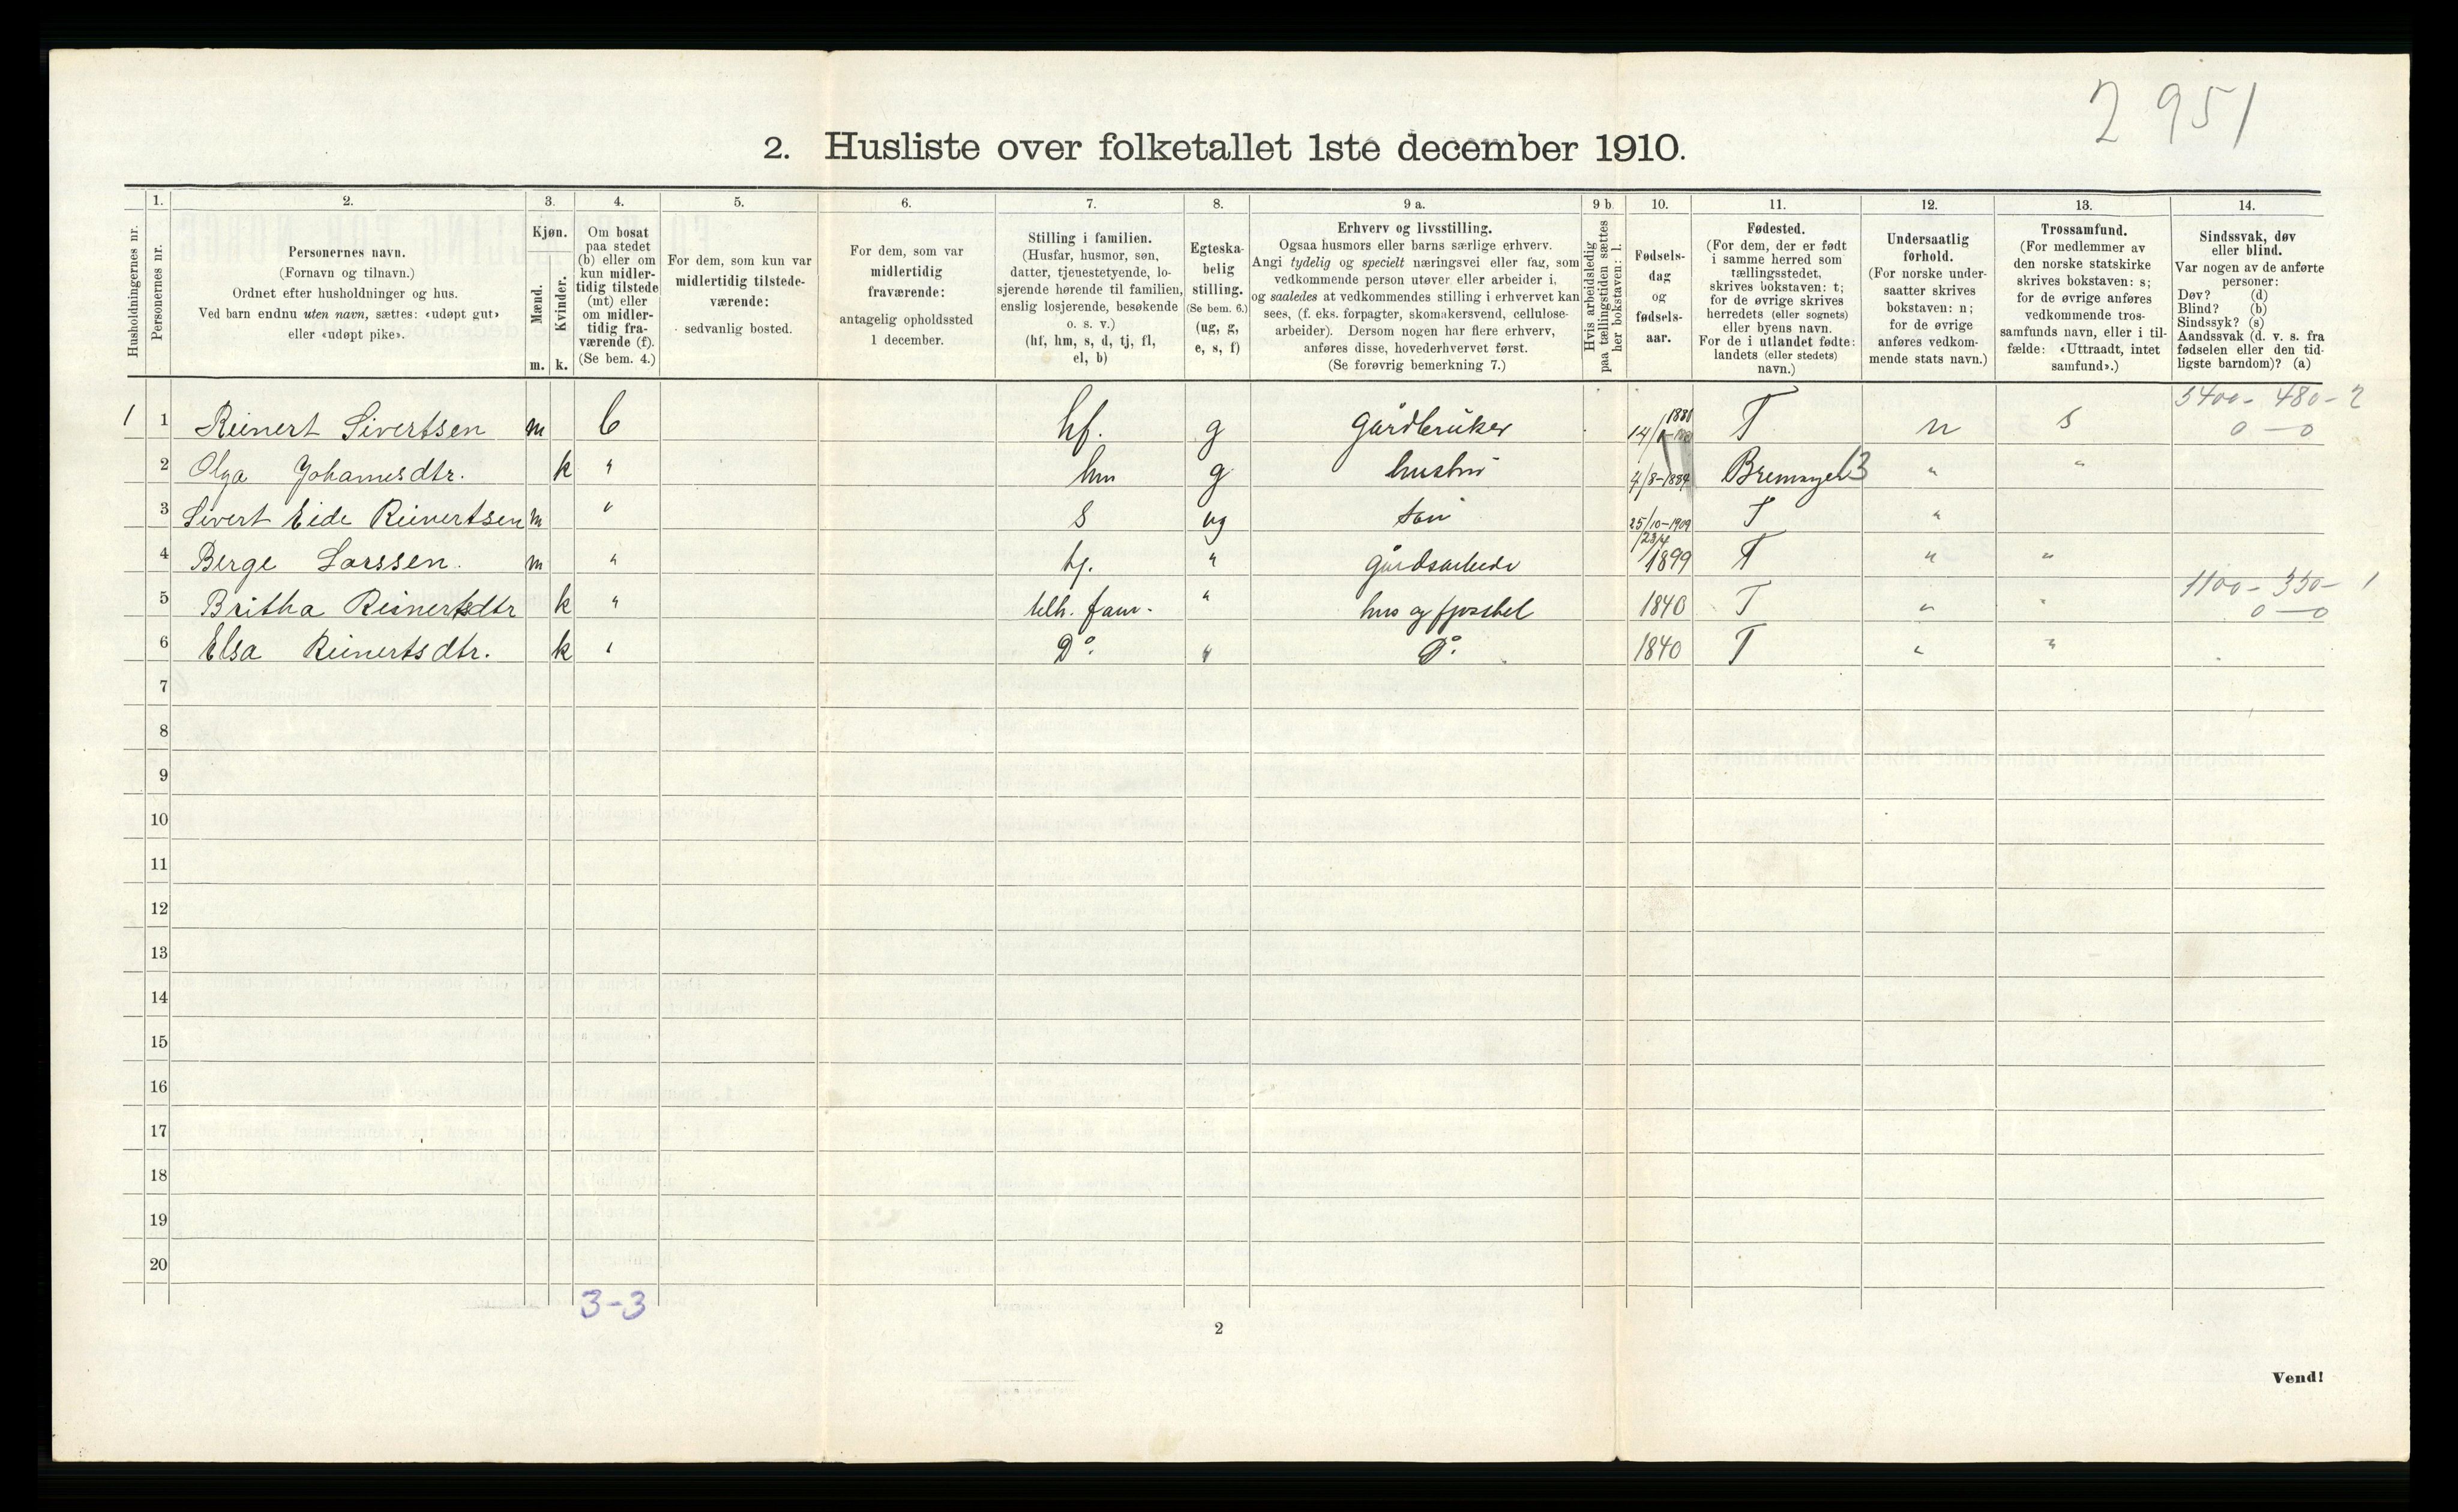 2 951
2. Husliste over folketallet 1ste december 1910.
Husholdningernes nr.
1.
Personernes nr.
2.
Personernes navn.
(Fornavn og tilnavn.)
Ordnet efter husholdninger og hus.
Ved barn endnu uten navn, sættes: «udøpt gut»
eller «udøpt pike».
3.
Kjøn.
Mænd.
Kvinder.
m. k.
4.
Om bosat
paa stedet
(b) eller om
kun midler-
tidig tilstede
(mt) eller
om midler-
tidig fra-
værende (f).
(Se bem. 4.)
5.
For dem, som kun var
midlertidig tilstede-
værende:
sedvanlig bosted.
6.
For dem, som var
midlertidig
fraværende:
antagelig opholdssted
1 december.
7.
Stilling i familien.
(Husfar, husmor, søn,
datter, tjenestetyende, lo-
sjerende hørende til familien,
enslig losjerende, besøkende
o. s. v.)
(hf, hm, s, d, tj, fl,
el, b)
8.
Egteska-
belig
stilling.
(Se bem. 6.)
(ug, g,
e, s, f)
9 a.
Erhverv og livsstilling.
Ogsaa husmors eller barns særlige erhverv.
Angi tydelig og specielt næringsvei eller fag, som
vedkommende person utøver eller arbeider i,
og saaledes at vedkommendes stilling i erhvervet kan
sees, (f. eks. forpagter, skomakersvend, cellulose-
arbeider). Dersom nogen har flere erhverv,
anføres disse, hovederhvervet først.
(Se forøvrig bemerkning 7.)
9 b.
Hvis arbeidsledig
paa tællingstiden sættes
her bokstaven: l.
10.
Fødsels-
dag
og
fødsels-
aar.
11.
Fødested.
(For dem, der er født
i samme herred som
tællingsstedet,
skrives bokstaven: t;
for de øvrige skrives
herredets (eller sognets)
eller byens navn.
For de i utlandet fødte:
landets (eller stedets)
navn.)
12.
Undersaatlig
forhold.
(For norske under-
saatter skrives
bokstaven: n;
for de øvrige
anføres vedkom-
mende stats navn.)
13.
Trossamfund.
(For medlemmer av
den norske statskirke
skrives bokstaven: s;
for de øvrige anføres
vedkommende tros-
samfunds navn, eller i til-
fælde: «Uttraadt, intet
samfund».)
14.
Sindssvak, døv
eller blind.
Var nogen av de anførte
personer:
Døv? (d)
Blind? (b)
Sindssyk? (s)
Aandssvak (d. v. s. fra
fødselen eller den tid-
ligste barndom)? (a)
5400 - 480 - 2
0 - 0
1 1 Reinert Sivertsen m b hf. g gårdbruker 14/1 1880 T n s
2 Olga Johannesdtr. k " hm g hustru 4/8-1884 " "
3 Sivert Eide Reinertsen m " s ug søn 25/10-1909 T "
4 Berge Larssen. m " tj. " gårdsarbeide 23/4 1899 T " "
1100 - 350 - 1
0 - 0
5 Britha Reinertsdtr k " tilh. fam. " hus og fjosstel 1840 T " "
6 Elsa Reinertsdtr. k " Do. " Do. 1840 T " "
7
8
9
10
11
12
13
14
15
16
17
18
19
20
3-3
2
Vend!